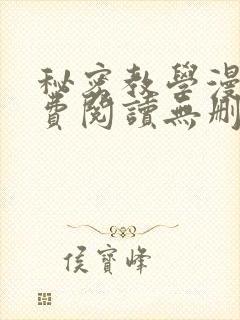 秘密教學漫
費閱讀無刪
侯寶峰